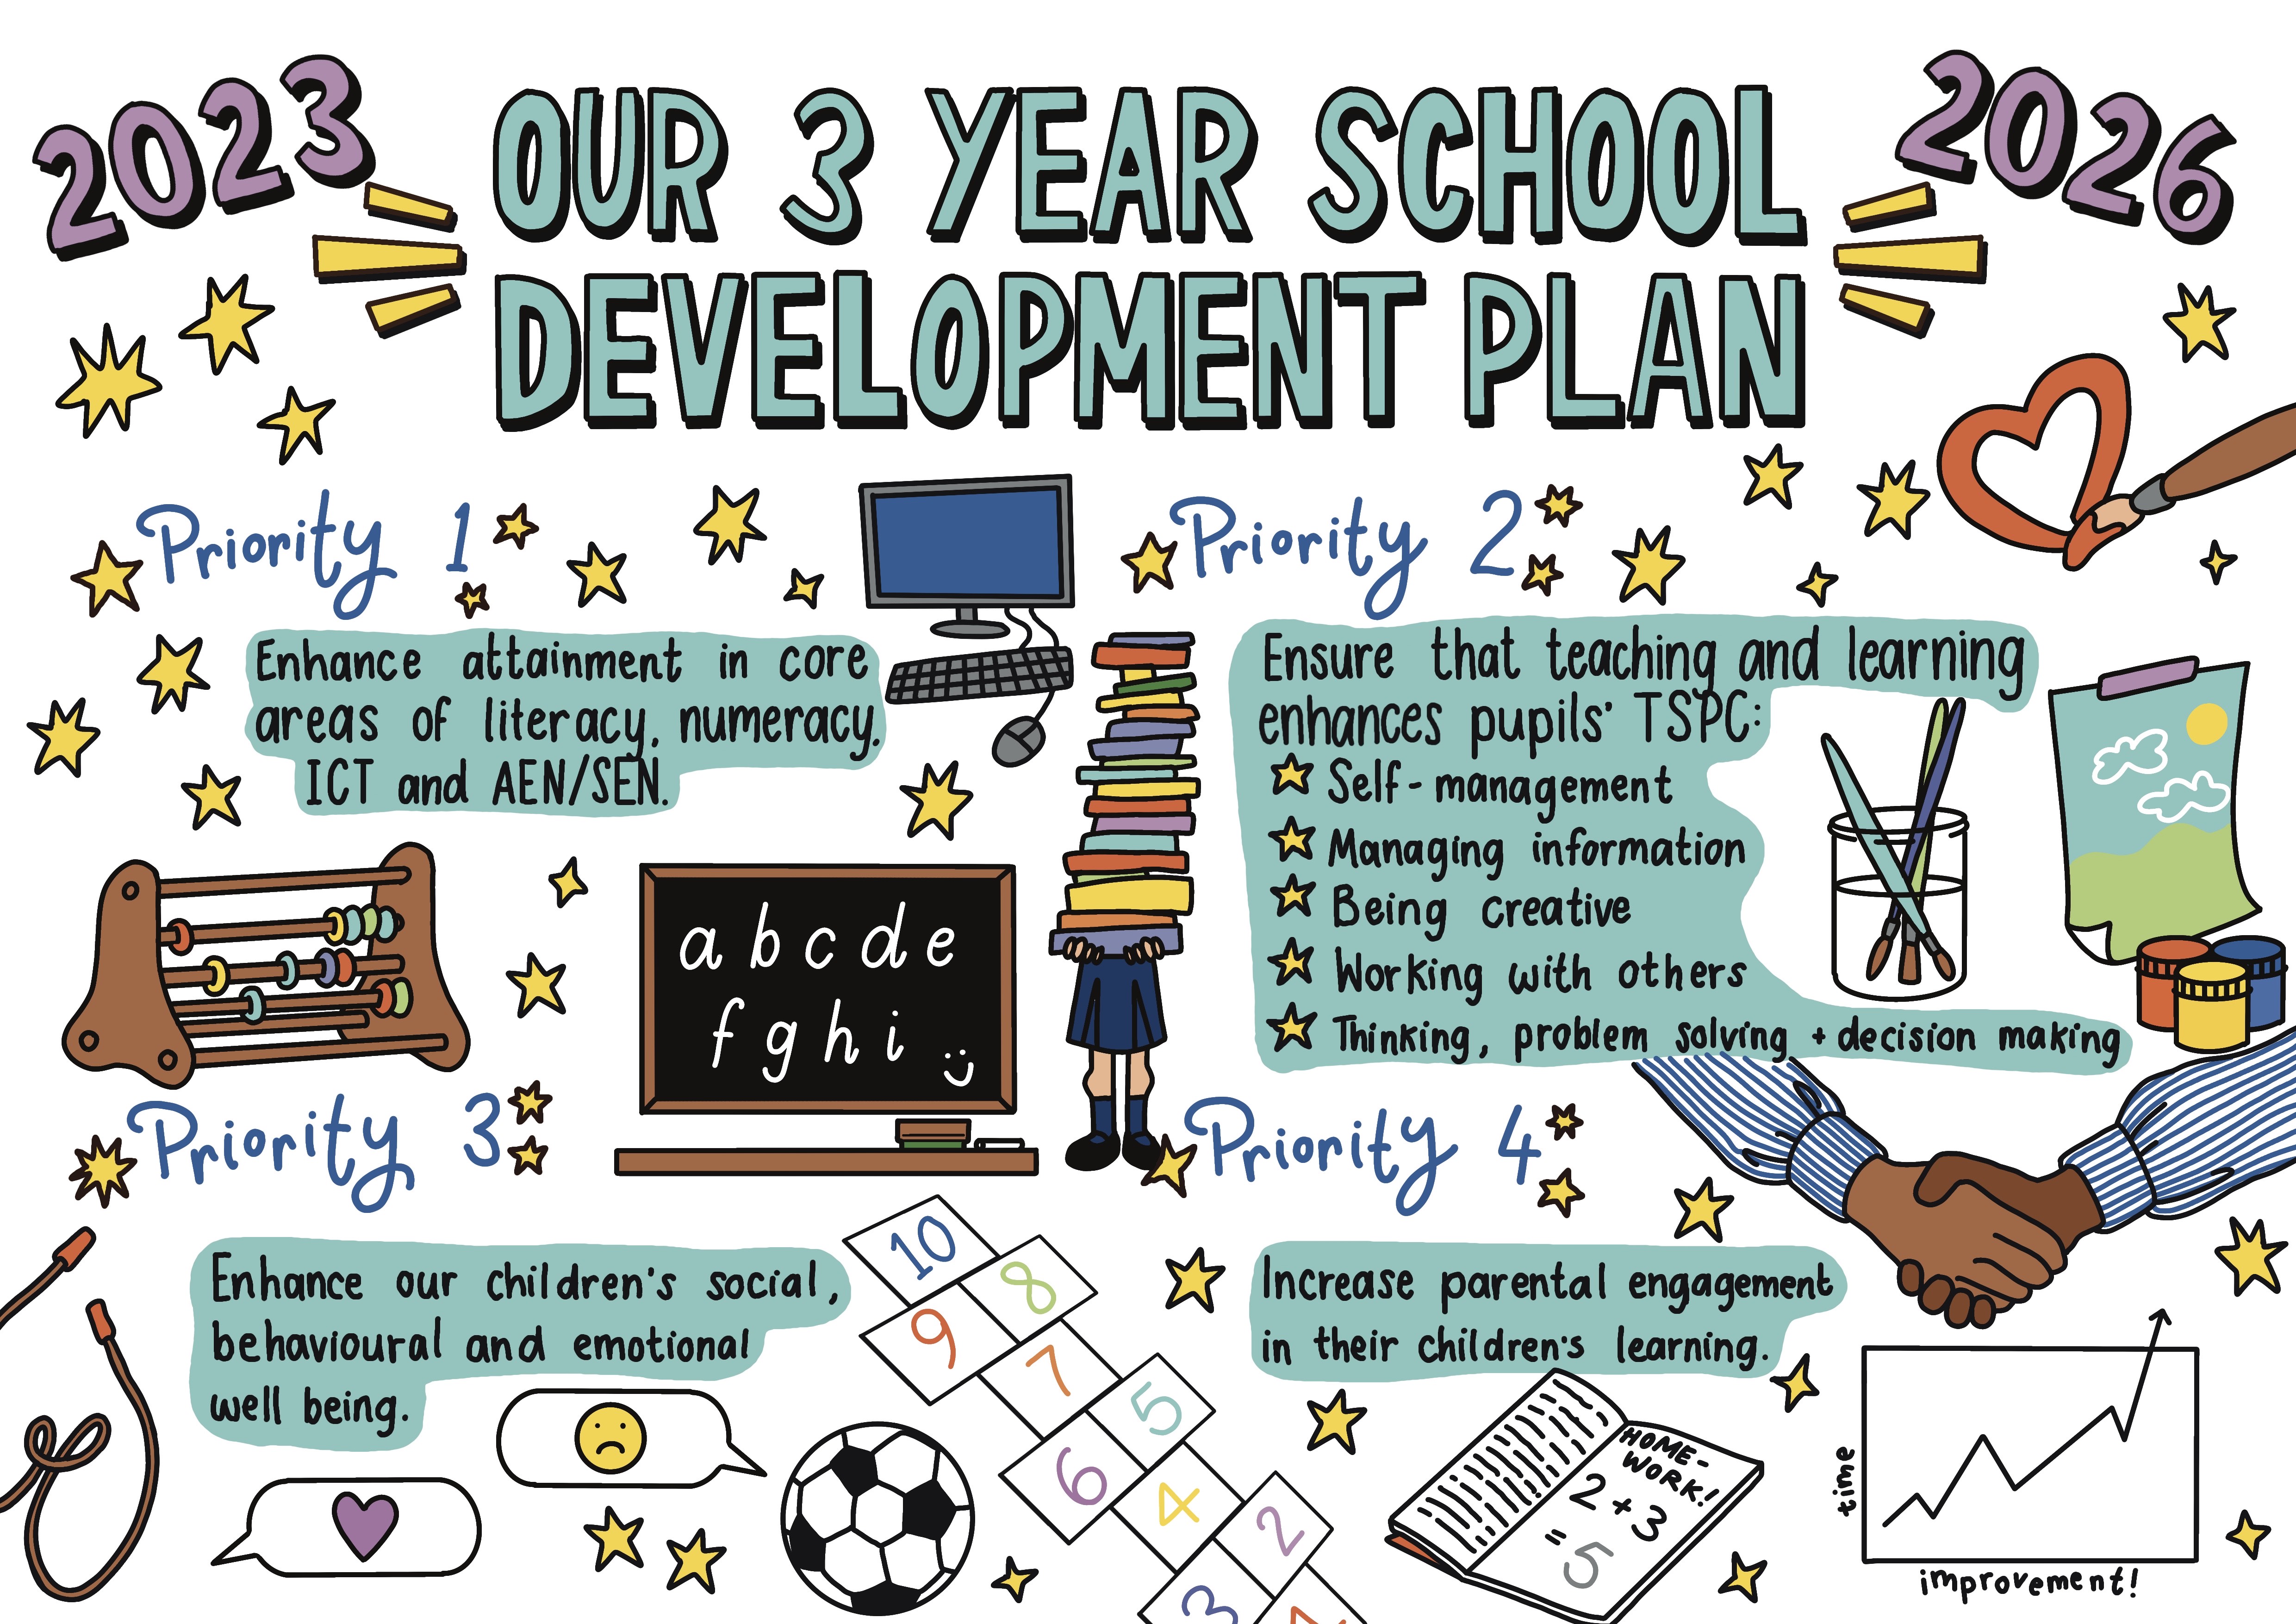 2023
OUR 3 YEAR SCHOOL
DEVELOPMENT PLAN
2026
Priority 1
Enhance attainment in core
areas of literacy, numeracy,
ICT and AEN/SEN.
Priority 2
Ensure that teaching and learning
enhances pupils' TSPC:
Self-management
Managing information
Being creative
Working with others
Thinking, problem solving + decision making
a b c d e
f g h i
Priority 3
Enhance our children's social,
behavioural and emotional
well being.
10
8
9
7
5
6
4
2
3
1
Priority 4
Increase parental engagement
in their children's learning.
HOME-
WORK!
2+3
=
5
time
improvement!